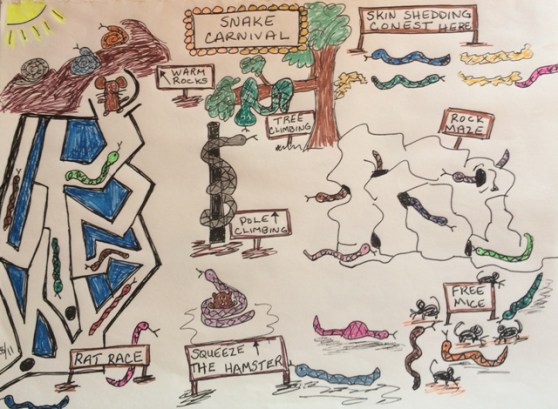 SNAKE
CARNIVAL
SKIN SHEDDING
CONEST HERE
WARM
ROCKS
TREE
CLIMBING
ROCK
MAZE
POLE
CLIMBING
FREE
MICE
RAT RACE
SQUEEZE
THE HAMSTER